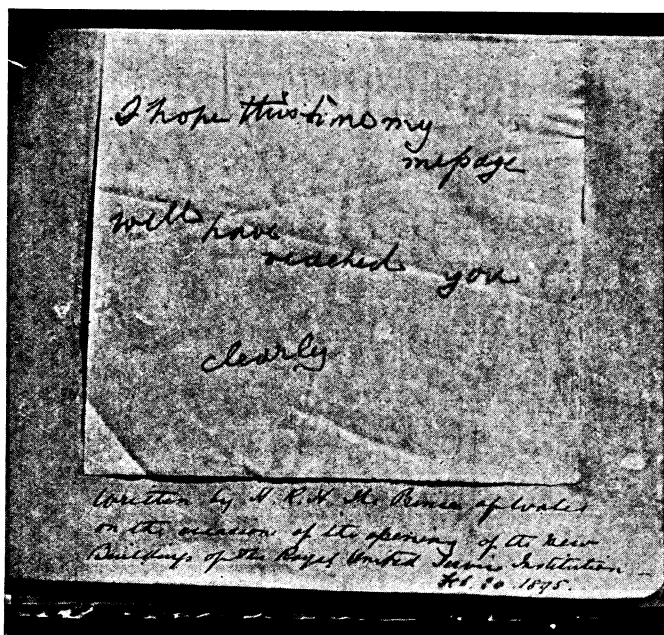 I hope this time my
message
will have
reached you
clearly
Written by H. R. H. the Prince of Wales
on the occasion of the opening of the new
Buildings of the Royal United Service Institution
Feb. 20. 1895.